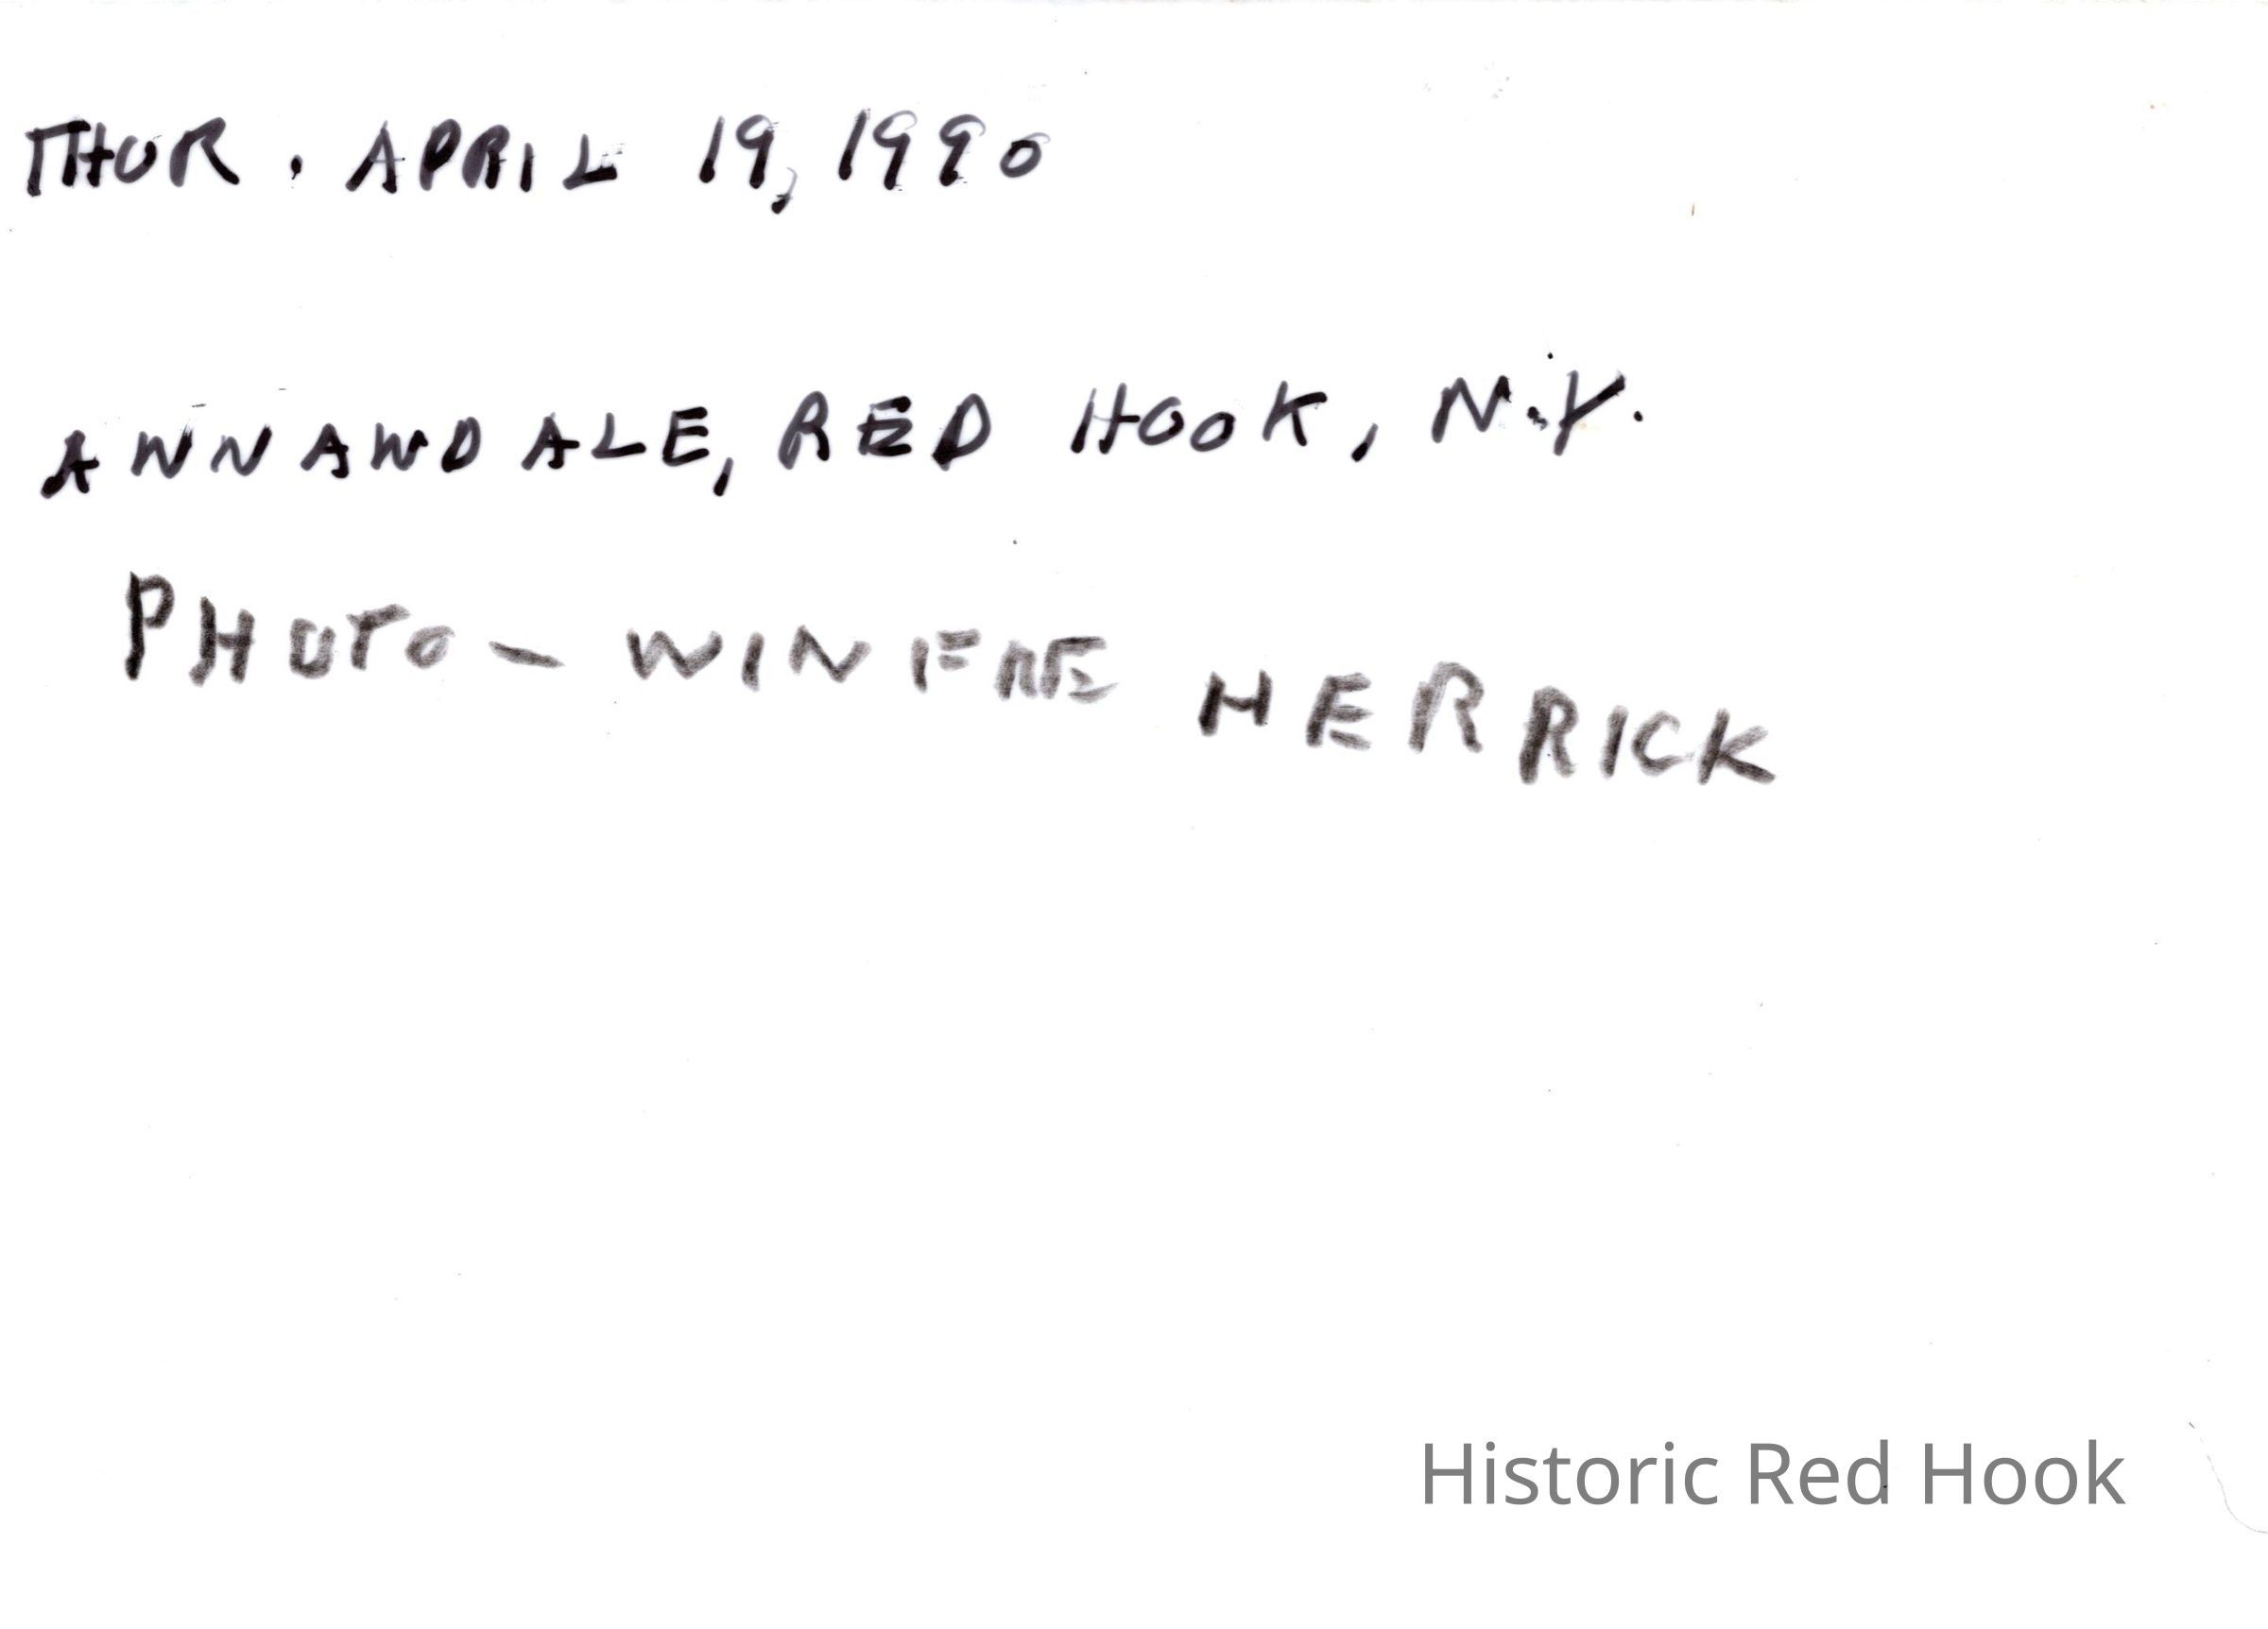 THUR. APRIL 19, 1990
ANNANDALE, RED HOOK, N.Y.
PHOTO - WINFRE HERRICK
Historic Red Hook